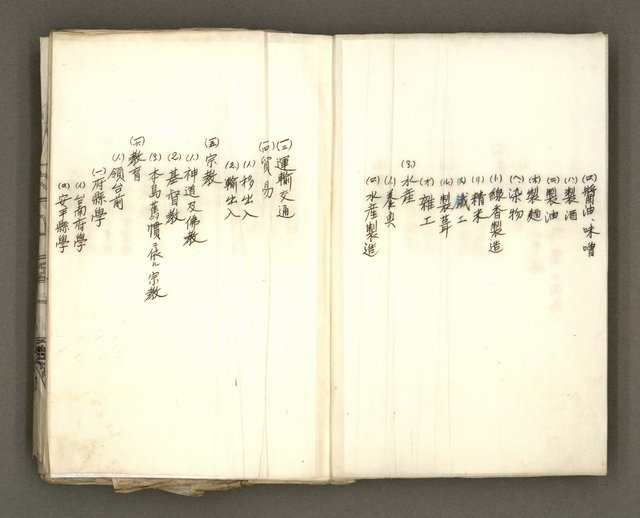 (ロ)醬油、味噌
(ハ)製酒
(ニ)製油
(ホ)製麵
(ヘ)染物
(ト)線香製造
(リ)精米
鐵工
(ル)製茸
(オ)雜工
(3)水産
(イ)養魚
(ロ)水産製造
(三)運輸交通
(四)貿易
(1)移出入
(2)輸出入
(五)宗教
(1)神道及佛教
(2)基督教
(3)本島舊慣ニ依ル宗教
(六)教育
(1)領台前
(一)府縣學
(イ)台南府學
(ロ)安平縣學